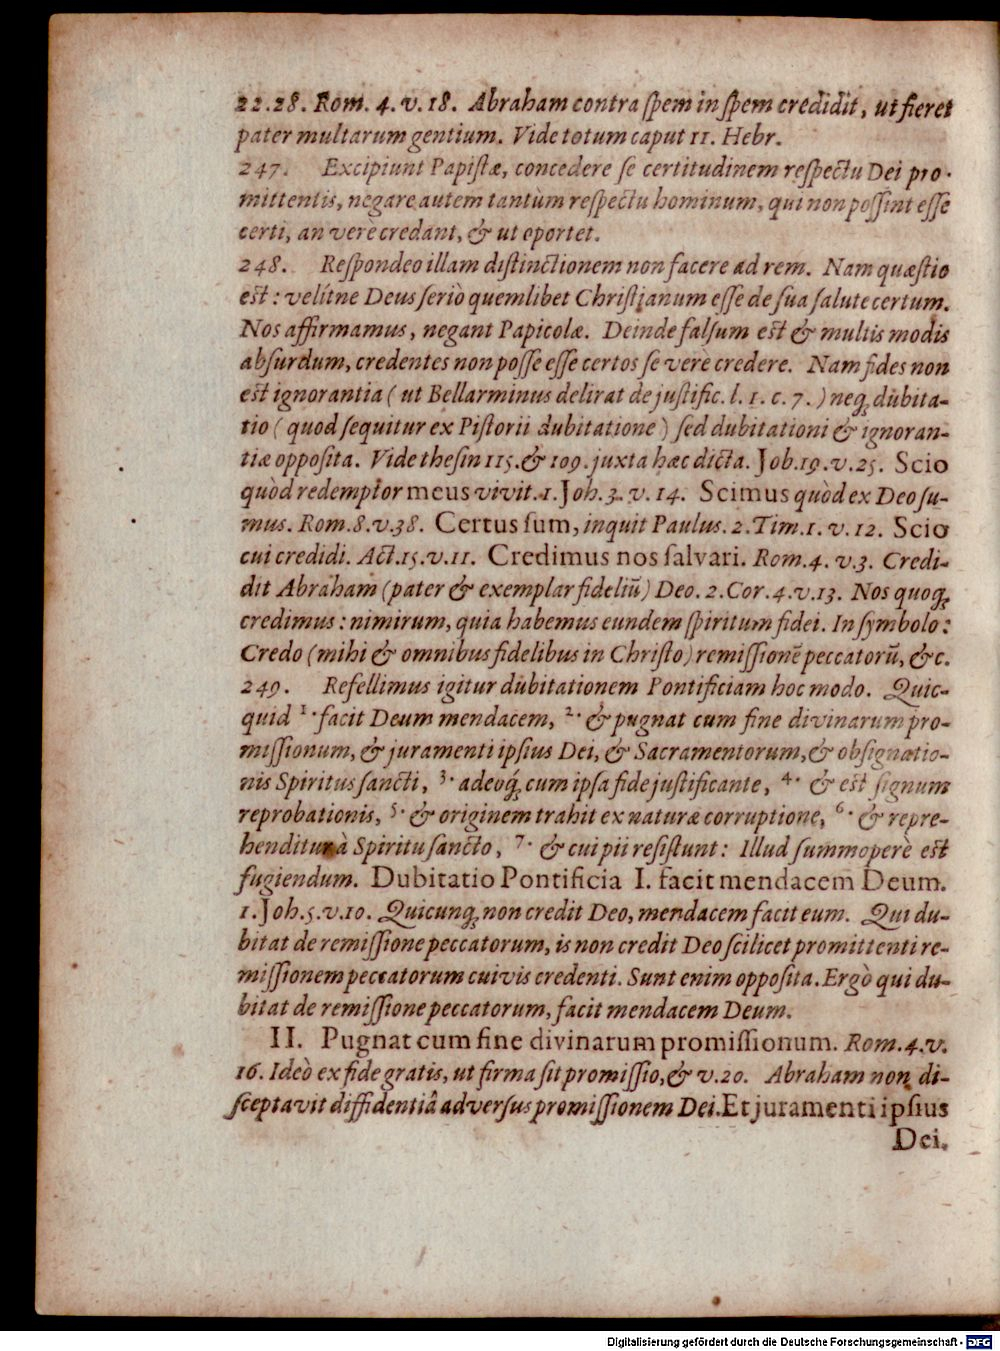 22.28. Rom. 4. v. 18. Abraham contra ſpem in ſpem credidit, ut fieret
pater multarum gentium. Vide totum caput 11. Hebr.
247. Excipiunt Papiſtæ, concedere ſe certitudinem reſpectu Dei pro-
mittentis, negare autem tantùm reſpectu hominum, qui non poſſint eſſe
certi, an verè credant, & ut oportet.
248. Reſpondeo illam diſtinctionem non facere ad rem. Nam quæſtio
eſt: velítne Deus ſeriò quemlibet Chriſtianum eſſe de ſua ſalute certum.
Nos affirmamus, negant Papicolæ. Deinde falſum eſt & multis modis
abſurdum, credentes non poſſe eſſe certos ſe verè credere. Nam fides non
eſt ignorantia ( ut Bellarminus delirat de juſtific. l. 1. c. 7. ) neq; dubita-
tio ( quod ſequitur ex Piſtorii dubitatione ) ſed dubitationi & ignoran-
tiæ oppoſita. Vide theſin 115. & 109. juxta hæc dicta. Job. 19. v. 25. Scio
quòd redemptor meus vivit. 1. Joh. 3. v. 14. Scimus quòd ex Deo ſu-
mus. Rom. 8. v. 38. Certus ſum, inquit Paulus. 2. Tim. 1. v. 12. Scio
cui credidi. Act. 15. v. 11. Credimus nos ſalvari. Rom. 4. v. 3. Credi-
dit Abraham (pater & exemplar fideliũ) Deo. 2. Cor. 4. v. 13. Nos quoq;
credimus: nimirum, quia habemus eundem ſpiritum fidei. In ſymbolo:
Credo (mihi & omnibus fidelibus in Chriſto) remiſſionẽ peccatorũ, &c.
249. Refellimus igitur dubitationem Pontificiam hoc modo. Quic-
quid 1. facit Deum mendacem, 2. & pugnat cum fine divinarum pro-
miſſionum, & juramenti ipſius Dei, & Sacramentorum, & obſignatio-
nis Spiritus ſancti, 3. adeoq; cum ipſa fide juſtificante, 4. & eſt ſignum
reprobationis, 5. & originem trahit ex naturæ corruptione, 6. & repre-
henditur à Spiritu ſancto, 7. & cui pii reſiſtunt: Illud ſummoperè eſt
fugiendum. Dubitatio Pontificia I. facit mendacem Deum.
1. Joh. 5. v. 10. Quicunq; non credit Deo, mendacem facit eum. Qui du-
bitat de remiſſione peccatorum, is non credit Deo ſcilicet promittenti re-
miſſionem peccatorum cuivis credenti. Sunt enim oppoſita. Ergò qui du-
bitat de remiſſione peccatorum, facit mendacem Deum.
II. Pugnat cum fine divinarum promiſſionum. Rom. 4. v.
16. Ideò ex fide gratis, ut firma ſit promiſſio, & v. 20. Abraham non di-
ſceptavit diffidentiâ adverſus promiſſionem Dei. Et juramenti ipſius
Dei.
Digitalisierung gefördert durch die Deutsche Forschungsgemeinschaft - DFG